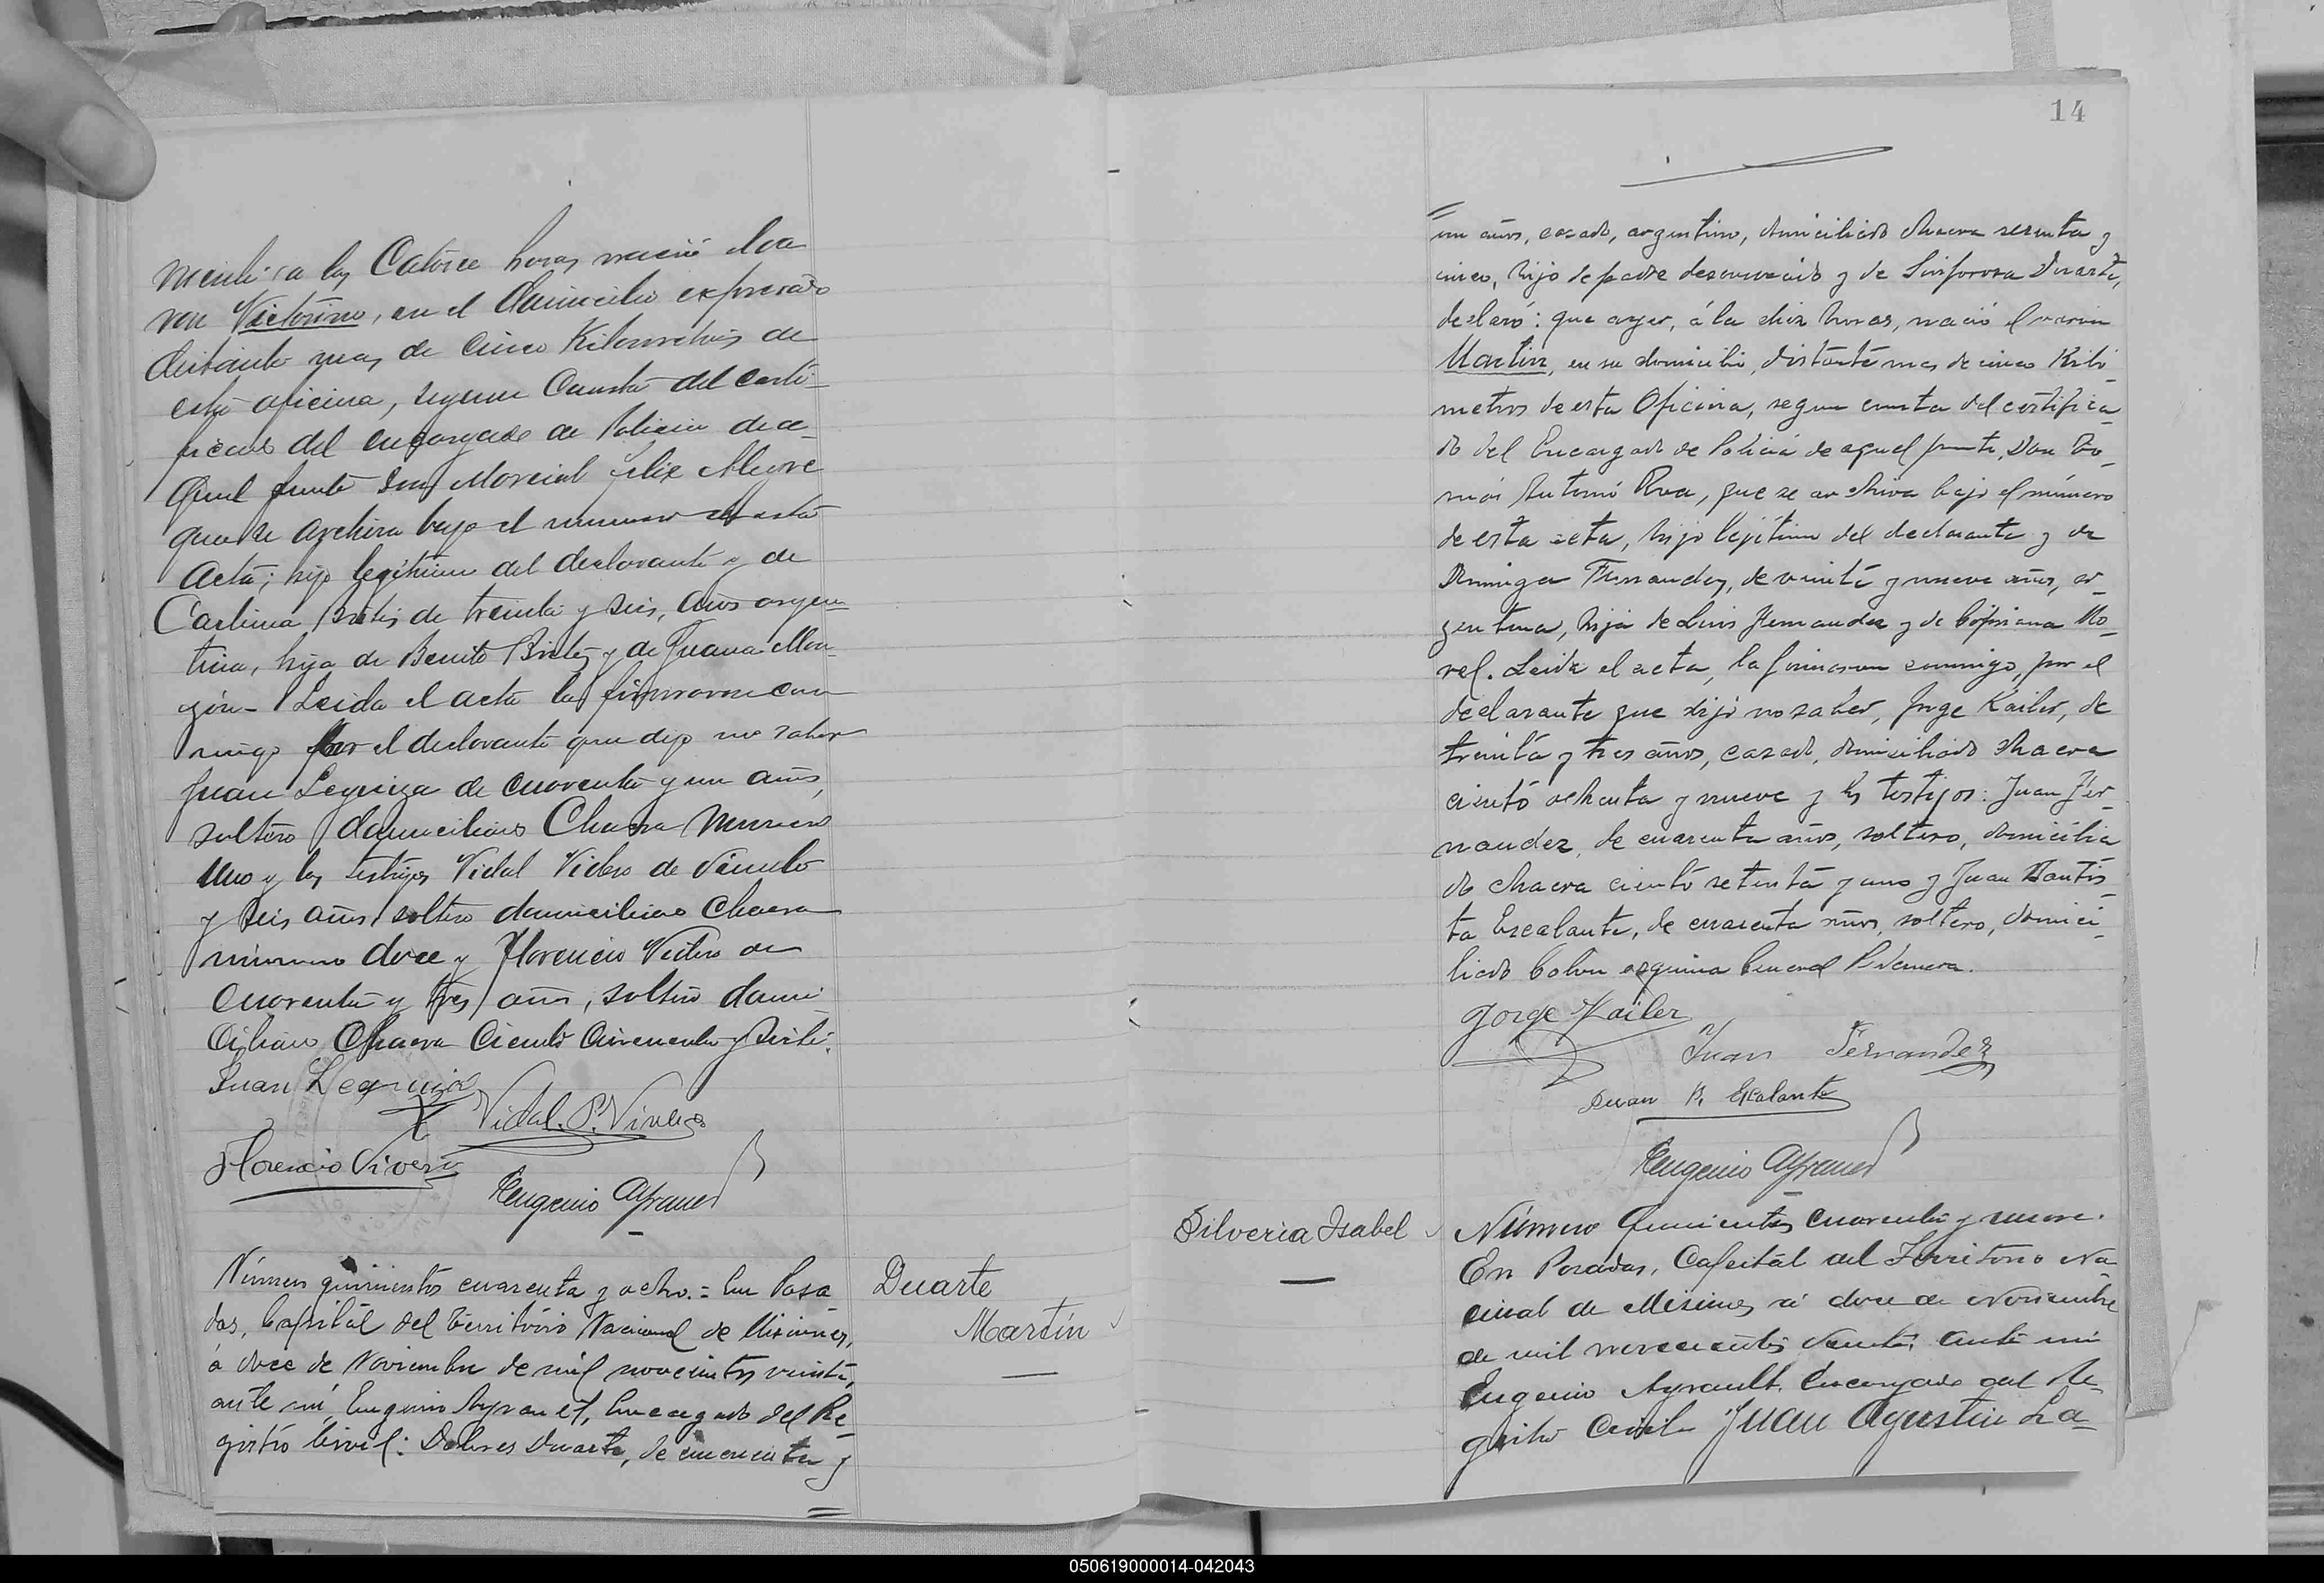 a las Catorce horas nació el va
ron Victorino, en el domicilio expresado
distante mas de cinco Kilometros de
esta oficina, segun Consta del certi-
ficado del encargado de Policia de a-
quel punto Don Marcial Felix Alegre
que se archiva bajo el numero de esta
Acta; hijo legitimo del declarante y de
Carlina Brites de treinta y seis, años argen-
tina, hija de Benito Brites y de Juana Mon-
gin- Leida el acta la firmaron con
migo por el declarante que dijo no saber
Juan Leguiza de cuarenta y un años,
soltero domiciliado Chacra Numero
Uno y los testigos Vidal de Veinte
y seis años soltero domiciliado Chacra
número doce y Florencio de
Cuarenta y tres años, soltero domi
ciliado Chacra Ciento Cincuenta y siete.
Juan Leguiza
Vidal. P.
Florencio
Eugenio Ayrault
Número quinientos cuarenta y ocho.= En Posa
das, Capital del Território Nacional de Misiones,
á doce de Noviembre de mil novecientos veinte,
ante mí, Eugenio Ayrault, Encargado del Re
gistro Civil: Dolores Duarte, de cincuenta y
Duarte
Martín
14
un años, casado, argentino, domiciliado chacra sesenta y
cinco, hijo de padre desconocido y de Sinforosa Duarte,
declaró: que ayer, á la diez horas, nació el varon
Martin, en su domicilio, distante mas de cinco Kiló
metros de esta Oficina, segun consta del certifica
do del Encargado de Policia de aquel punto, Don To
más Antonio Roa, que se archiva bajo el número
de esta acta, hijo legítimo del declarante y de
Dominga Fernandez, de veinte y nueve años, ar
gentina, hija de Luis Fernandez y de Cipriana Mo
rel. Leida el acta, la firmaron conmigo, por el
declarante que dijo no saber, Jorge Kailer, de
treinta y tres años, casado, domiciliado chacra
ciento ochenta y nueve y los testigos: Juan Fer
nandez, de cuarenta años, soltero, domicilia
do chacra ciento setenta y uno y Juan Bautis
ta Escalante, de cuarenta años, soltero, domici
liado Colon esquina General Ribera.
Jorge Kailer
Juan Fernandez
Juan B. Escalante
Eugenio Ayrault
Silveria Isabel
Número Quinientos cuarenta y nueve.
En Posadas, Capital del Territorio Na
cional de Misiones á doce de Noviembre
de mil novecientos veinte, ante mi
Eugenio Ayrault, Encargado del Re-
gistro Civil Juan Agustin La-
050619000014-042043